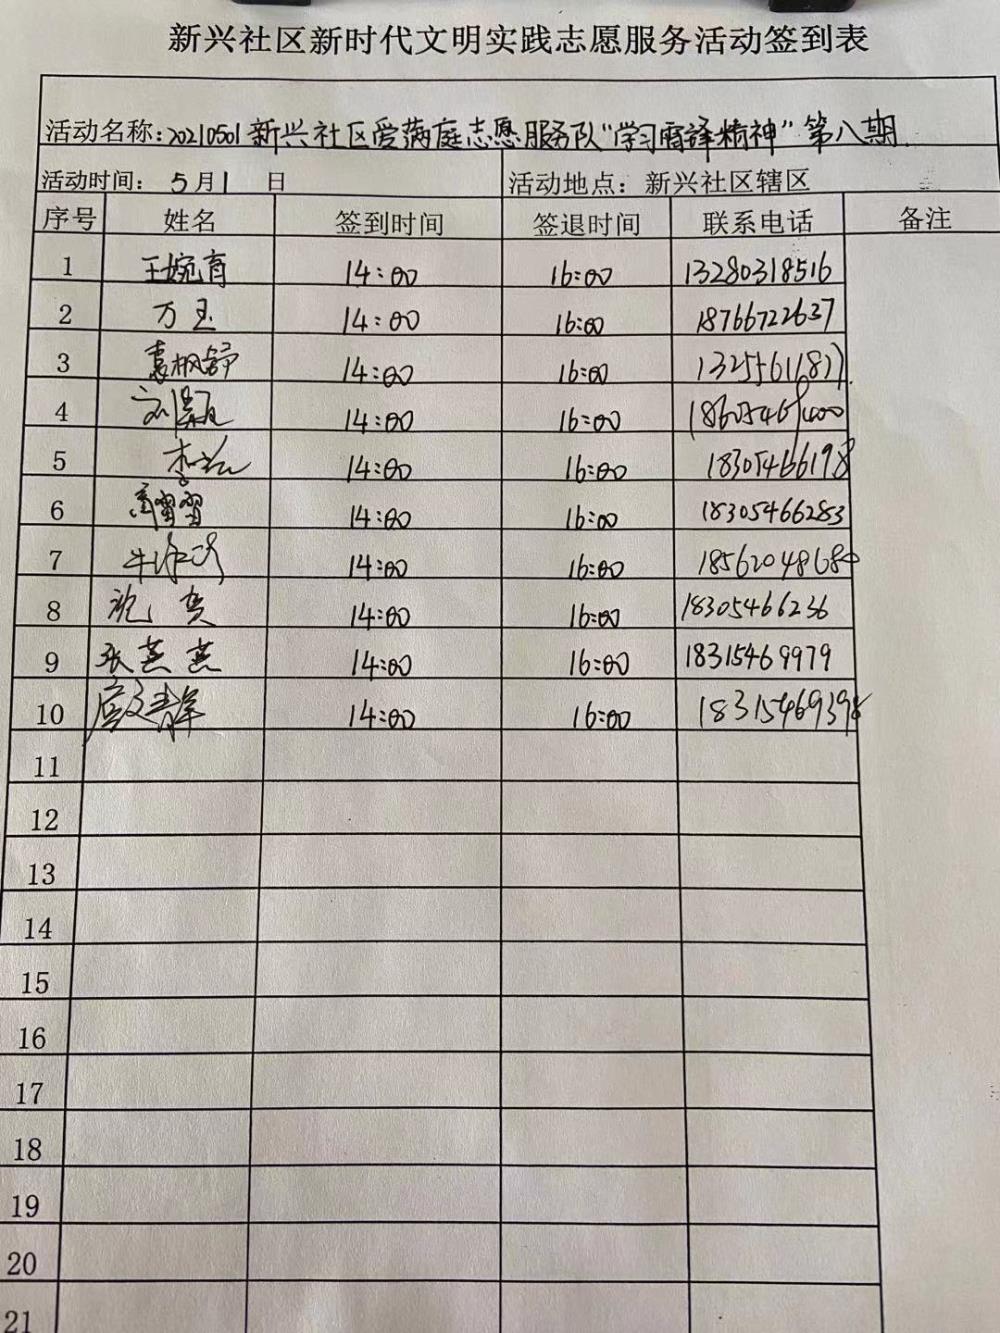 新兴社区新时代文明实践志愿服务活动签到表
活动名称:20210501新兴社区爱满庭志愿服务队"学习雷锋精神"第八期
活动时间: 5月1 日 活动地点: 新兴社区辖区
序号 姓名 签到时间 签退时间 联系电话 备注
1 王婉育 14:00 16:00 13280318516
2 万玉 14:00 16:00 18766722637
3 袁枫舒 14:00 16:00
4 14:00 16:00
5 14:00 16:00 18305466198
6 14:00 16:00 18305466283
7 14:00 16:00
8 14:00 16:00 18305466236
9 张燕燕 14:00 16:00 18315469979
10 14:00 16:00 18315469398
11
12
13
14
15
16
17
18
19
20
21